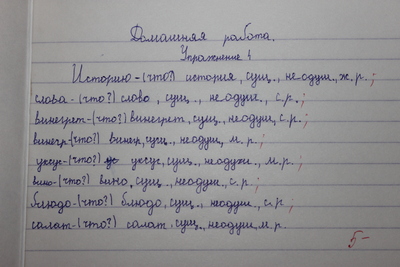 Домашняя работа.
Упражнение 1
Историю-(что?) история, сущ., неодуш., ж.р.;
слова-(что?) слово, сущ., неодуш., с.р.;
винегрет-(что?) винегрет, сущ., неодуш, с.р.;
винегр-(что?) винегр, сущ., неодуш, м.р.;
уксус-(что?) уксус, сущ., неодуш., м.р.;
вино-(что?) вино, сущ., неодуш., с.р.;
блюдо-(что?) блюдо, сущ., неодуш., с.р.;
салат-(что?) салат, сущ., неодуш, м.р.
5-